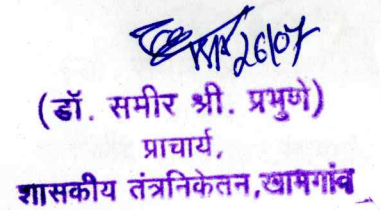 26/07
(डॉ. समीर श्री. प्रभुणे)
प्राचार्य,
शासकीय तंत्रनिकेतन,खामगांव